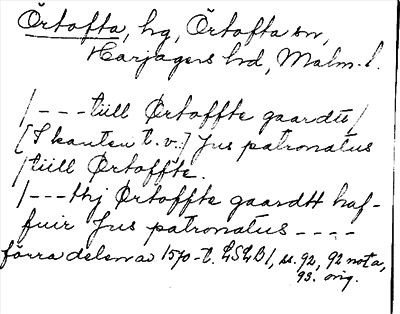 Örtofta, hg, Örtofta sn,
Harjagers hd, Malm. l.
/---tiill Ørtoffte gaardtt/
[I kanten t.v.:] Jus patronatus
/tiill Ørtoffte.
/---thj Ørtoffte gaardtt haf-
fuir Jus patronatus ----
förra delen av 1570-t. LSLB 1, s. 92, 92 nota,
93. orig.